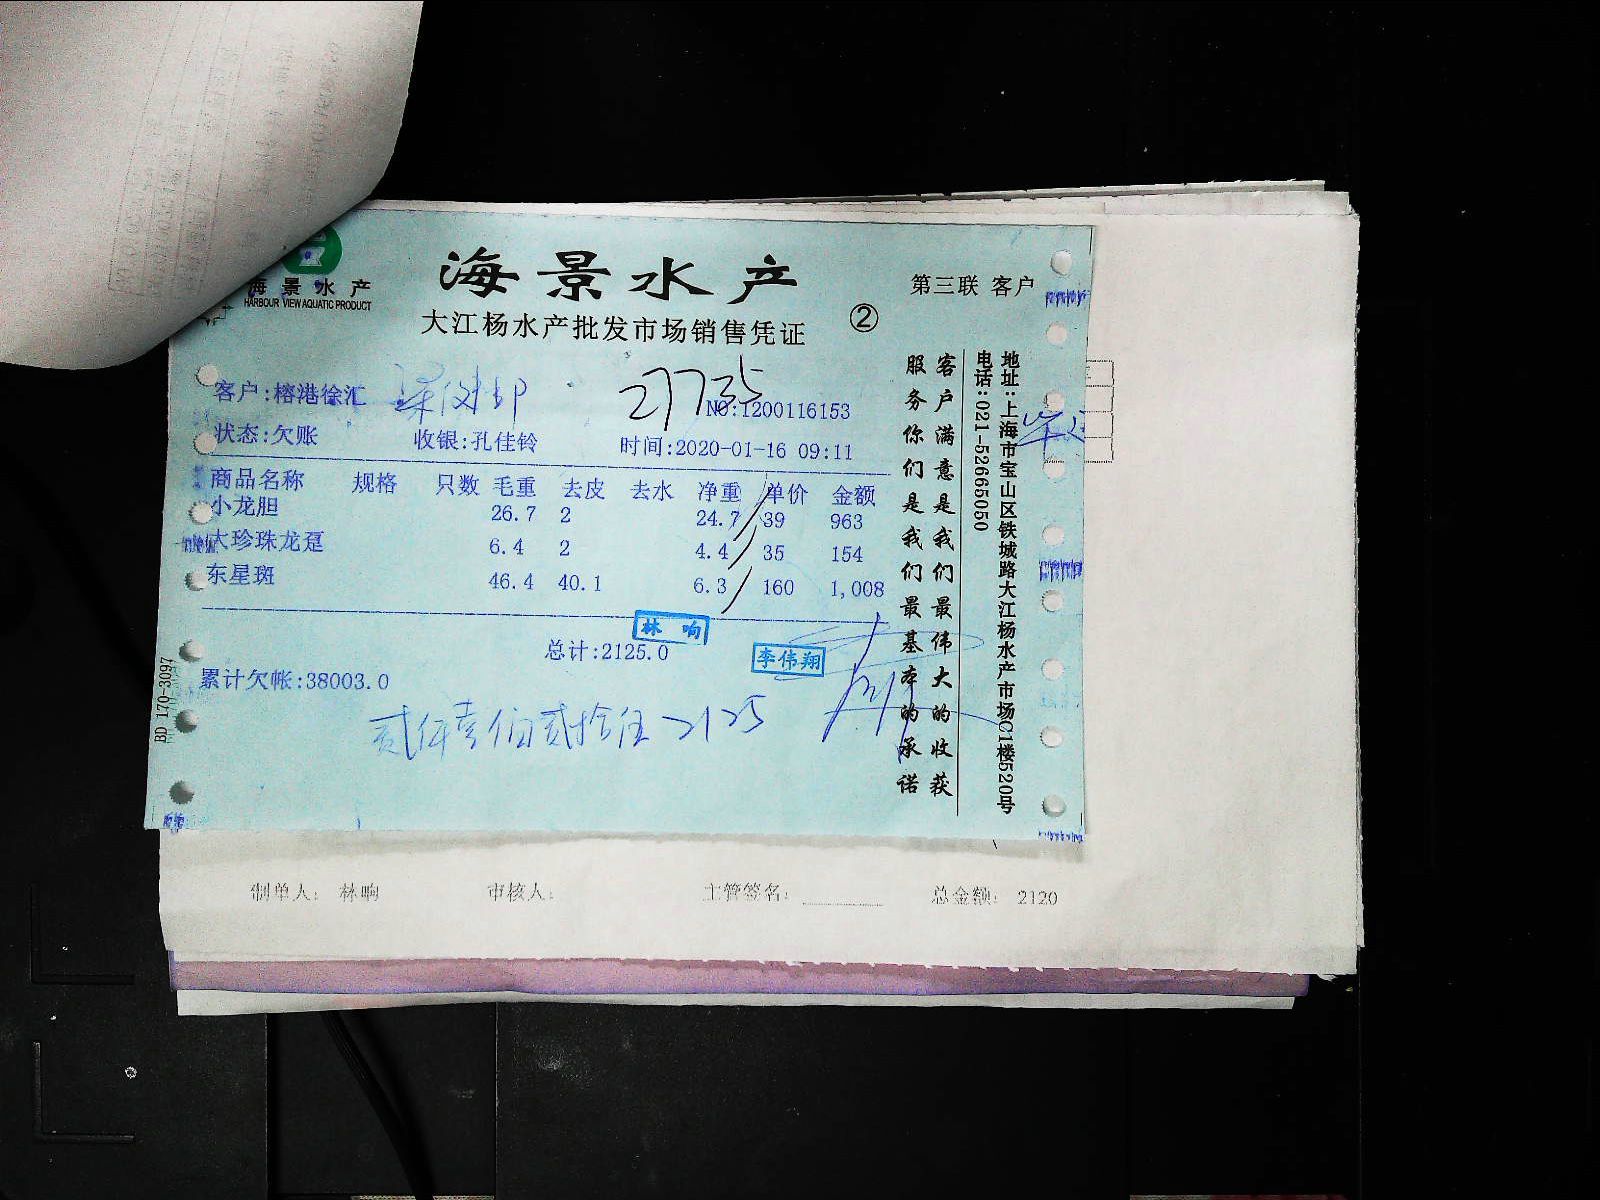 海景水产
HARBOUR VIEW AQUATIC PRODUCT
海景水产
大江杨水产批发市场销售凭证
②
第三联 客户
客户:榕港徐汇
27735
NO:1200116153
状态:欠账 收银:孔佳铃 时间:2020-01-16 09:11
商品名称 规格 只数 毛重 去皮 去水 净重 单价 金额
小龙胆 26.7 2 24.7 39 963
大珍珠龙趸 6.4 2 4.4 35 154
东星斑 46.4 40.1 6.3 160 1,008
林响
总计:2125.0
李伟翔
累计欠帐:38003.0
贰仟壹佰贰拾伍 2125
客户满意是我们最伟大的收获
服务你们是我们最基本的承诺
地址:上海市宝山区铁城路大江杨水产市场C1楼520号
电话:021-52665050
BD 170-3097
制单人: 林响 审核人: 主管签名: 总金额: 2120